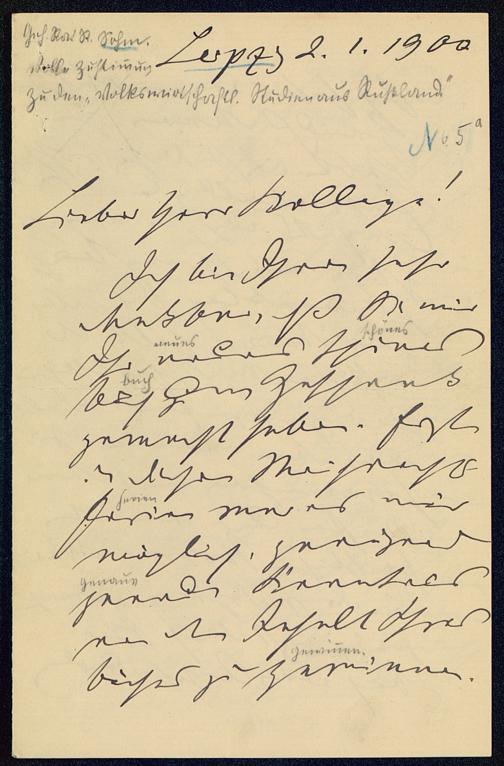 Geh. Rat R. Sohm.
Volle Zustimung
zu den „Volkswirtschaftl. Studien aus Rußland"
Leipzig 2. 1. 1900
No 5a
Lieber Herr Kollege!
Ich bin Ihnen sehr
dankbar, daß Sie mir
neues schönes
Ihr neues schönes
buch
Buch zum Geschenk
gemacht haben. Erst
in diesen Weihnachts
ferien
ferien war es mir
möglich, genügend
genaue
genaue Kenntnis
von dem Inhalt Ihres
gewinnen.
Buches zu gewinnen.